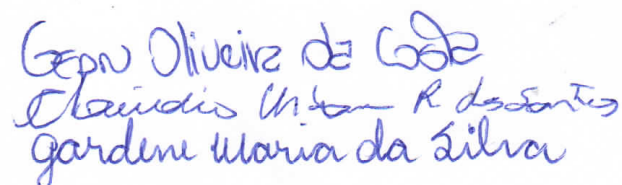 Geon Oliveira da Costa
Claudio R dos Santos
Gardene Maria da Silva